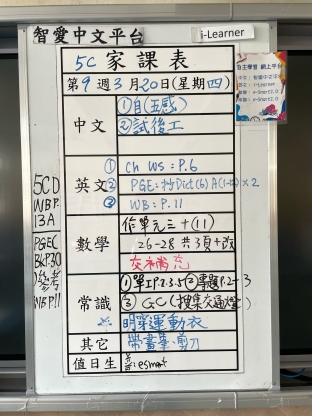 智愛中文平台
i-Learner
5C 家課表
第9週3月20日(星期四)
中文
①自(五感)
②試後工
英文
① Ch WS : P.6
② PGE: 持Dict(6) A(1-12) × 2
③ WB : P.11
數學
作單元三十(11)
26-28 共3頁+改
交補充
常識
①單IP.2.3.5 ②專題P.2-3
③ GC(搜集交通燈)
※ 明穿運動衣
其它
帶畫筆.剪刀
值日生
esmart
5CD
WBP.
13A
PGEC
BKP30
WBP.11
自主學習 網上平台